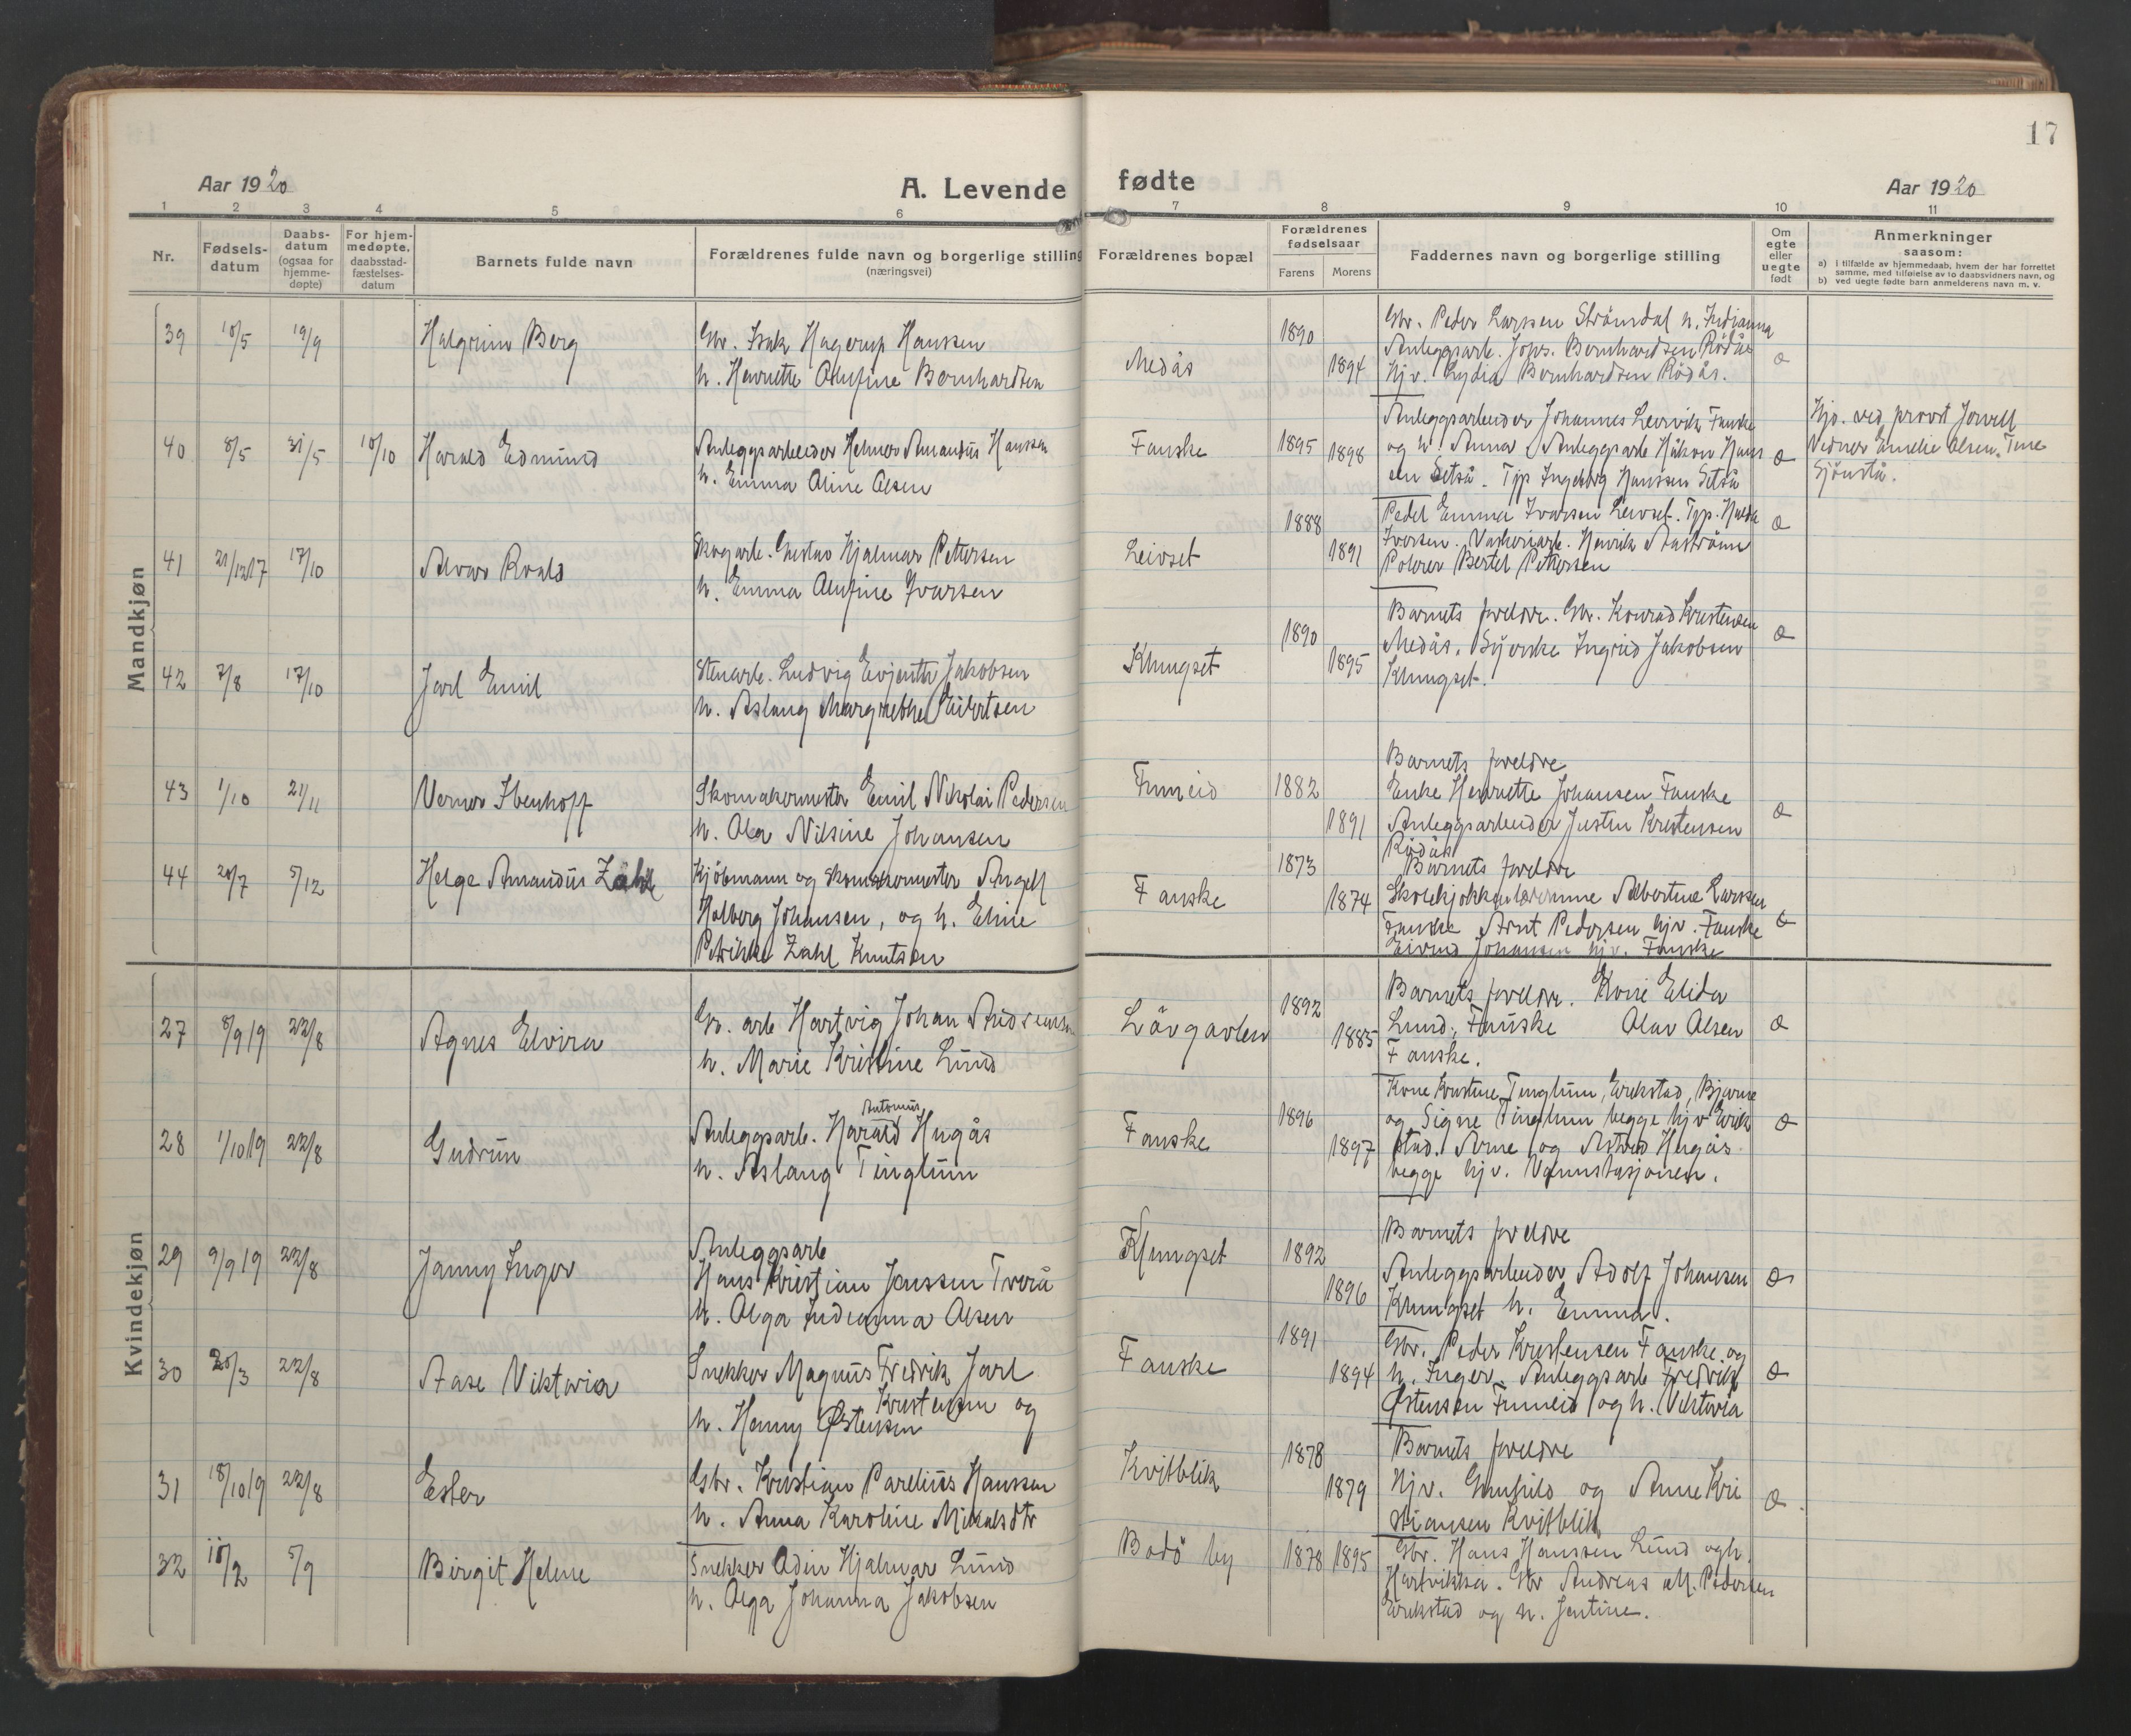 17
Aar 1920
A. Levende fødte
Aar 1920
1 2 3 4 5 6 7 8 9 10 11
Nr.
Fødsels-
datum
Daabs-
datum
(ogsaa for
hjemme-
døpte)
For hjem-
medøpte,
daabsstad-
fæstelses-
datum
Barnets fulde navn
Forældrenes fulde navn og borgerlige stilling
(næringsvei)
Forældrenes bopæl
Forældrenes
fødselsaar
Farens Morens
Faddernes navn og borgerlige stilling
Om
egte
eller
uegte
født
Anmerkninger
saasom:
a) i tilfælde av hjemmedaab, hvem der har forrettet
samme, med tilføielse av to daabsvidners navn, og
b) ved uegte fødte barn anmelderens navn m. v.
Mandkjøn
39 10/5 19/9 Halgrim Berg
Gbr. Isak Hagerup Hanssen
h. Henriette Olufine Bernhardsen
Medås 1890 1894
Gbr. Peder Larssen Strömdal h. Indianna
Anleggsarb. Johs. Bernhardsen Rödås
Hjv. Lydia Bernhardsen Rödås.
40 8/5 31/5 10/10 Harald Edmund
Anleggsarbeider Helmer Amandus Hanssen
h. Emma Oline Olsen
Fauske 1895 1898
Anleggsarbeider Johannes Leirvik Fauske
og h. Anna. Anleggsarb Håkon Hans
sen Setså. Tjp Ingeborg Hanssen Setså
Hjd. ved provst Jowell
Vidner Emelie Olsen, Tine
Sjönstå.
41 21/12 17 17/10 Alvar Roald
Skogarb. Gustav Hjalmar Pettersen
h. Emma Olufine Ivarsen
Leivset 1888 1891
Pedel Emma Ivarsen Leivset. Tjp. Hulda
Ivarsen. Henrik
Bertel Pettersen
42 7/8 17/10 Jarl Emil
Stenarb. Ludvig Evjenth Jakobsen
h. Aslaug Margrethe Eilertsen
Klungset 1890 1895
Barnets foreldre. Gbr. Konrad Kristensen
Medås. Ingrid Jakobsen
Klungset.
43 1/10 21/11 Verner Ibenhoff
Skomakermester Emil Nikolai Pedersen
h. Olga Nilsine Johansen
Finneid 1882 1891
Barnets foreldre
Enke Henriette Johansen Fauske
Anleggsarbeider Justin Kristensen
Rödås
44 20/7 5/12 Helge Amandus Zahl
Kjöbmann og skomakermester Angell
Holberg Johansen, og h. Eline
Petrikke Zahl Knutsen
Fauske 1873 1874
Barnets foreldre
Skolekjökkenlærerinne Albertine Larssen
Fauske Arnt Pedersen hjv. Fauske
Eivind Johansen hjv. Fauske
Kvindekjøn
27 8/9 19 22/8 Agnes Elvira
Gr. arb Hartvig Johan Andreassen
h. Marie Kristine Lund
Lövgavlen 1892 1885
Barnets foreldre. Kone Elida
Lund, Fauske Olav Olsen
Fauske.
28 1/10 19 22/8 Gudrun
Antonius
Anleggsarb. Harald Hugås
h. Aslaug Tinglum
Fauske 1896 1897
Kone Kristine Tinglum, Erikstad, Bjarne
og Signe Tinglum begge hjv Erik
stad. Arne og Astrid Hugås
begge hjv. Vannstasjonen.
29 9/9 19 22/8 Janny Inger
Anleggsarb
Hans Kristian Janssen Tverå
h. Olga Indianna Olsen
Klungset 1892 1896
Barnets foreldre
Anleggsarbeider Adolf Johansen
Klungset h. Emma.
30 20/3 22/8 Aase Viktoria
Snekker Magnus Fredrik Jarl
Kristensen og
h. Hanny Østensen
Fauske 1891 1894
Gbr. Peder Kristensen Fauske og
h. Inger. Anleggsarb Fredrik
Østensen Finneid og h. Viktoria
31 18/10 19 22/8 Ester
Gbr. Kristian Parelius Hanssen
h. Anna Karoline Mikalsdtr
Kvitblik 1878 1879
Barnets foreldre
Hjv. Gunhild og Anne Kri
stiansen Kvitblik
32 10/2 5/9 Birgit Helene
Snekker Odin Hjalmar Lund
h. Olga Johanna Jakobsen
Bodö by 1878 1895
Gbr. Hans Hanssen Lund og h.
Hartvikka. Gbr Andreas M. Pedersen
Erikstad og h. Jentine.